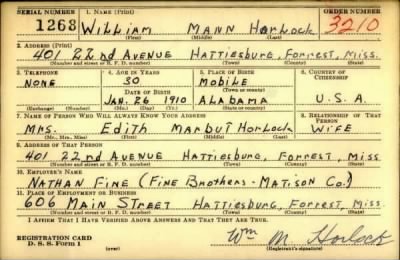 SERIAL NUMBER 1. NAME (Print) ORDER NUMBER
1268 WILLIAM MANN HORLOCK 3210
(First) (Middle) (Last)
2. ADDRESS (Print)
401 22nd AVENUE HATTIESBURG, FORREST, MISS.
(Number and street or R. F. D. number) (Town) (County) (State)
3. TELEPHONE 4. AGE IN YEARS 5. PLACE OF BIRTH 6. COUNTRY OF CITIZENSHIP
NONE 30 MOBILE
DATE OF BIRTH (Town or county)
JAN. 26 1910 ALABAMA U.S.A.
(Exchange) (Number) (Mo.) (Day) (Yr.) (State or country)
7. NAME OF PERSON WHO WILL ALWAYS KNOW YOUR ADDRESS 8. RELATIONSHIP OF THAT PERSON
MRS. EDITH MARBUT HORLOCK WIFE
(Mr., Mrs., Miss) (First) (Middle) (Last)
9. ADDRESS OF THAT PERSON
401 22nd AVENUE HATTIESBURG, FORREST, MISS.
(Number and street or R. F. D. number) (Town) (County) (State)
10. EMPLOYER'S NAME
NATHAN FINE (FINE BROTHERS - MATISON CO.)
11. PLACE OF EMPLOYMENT OR BUSINESS
606 MAIN STREET HATTIESBURG, FORREST, MISS.
(Number and street or R. F. D. number) (Town) (County) (State)
I AFFIRM THAT I HAVE VERIFIED ABOVE ANSWERS AND THAT THEY ARE TRUE.
REGISTRATION CARD
D. S. S. Form 1 Wm M. Horlock
(Registrant's signature)